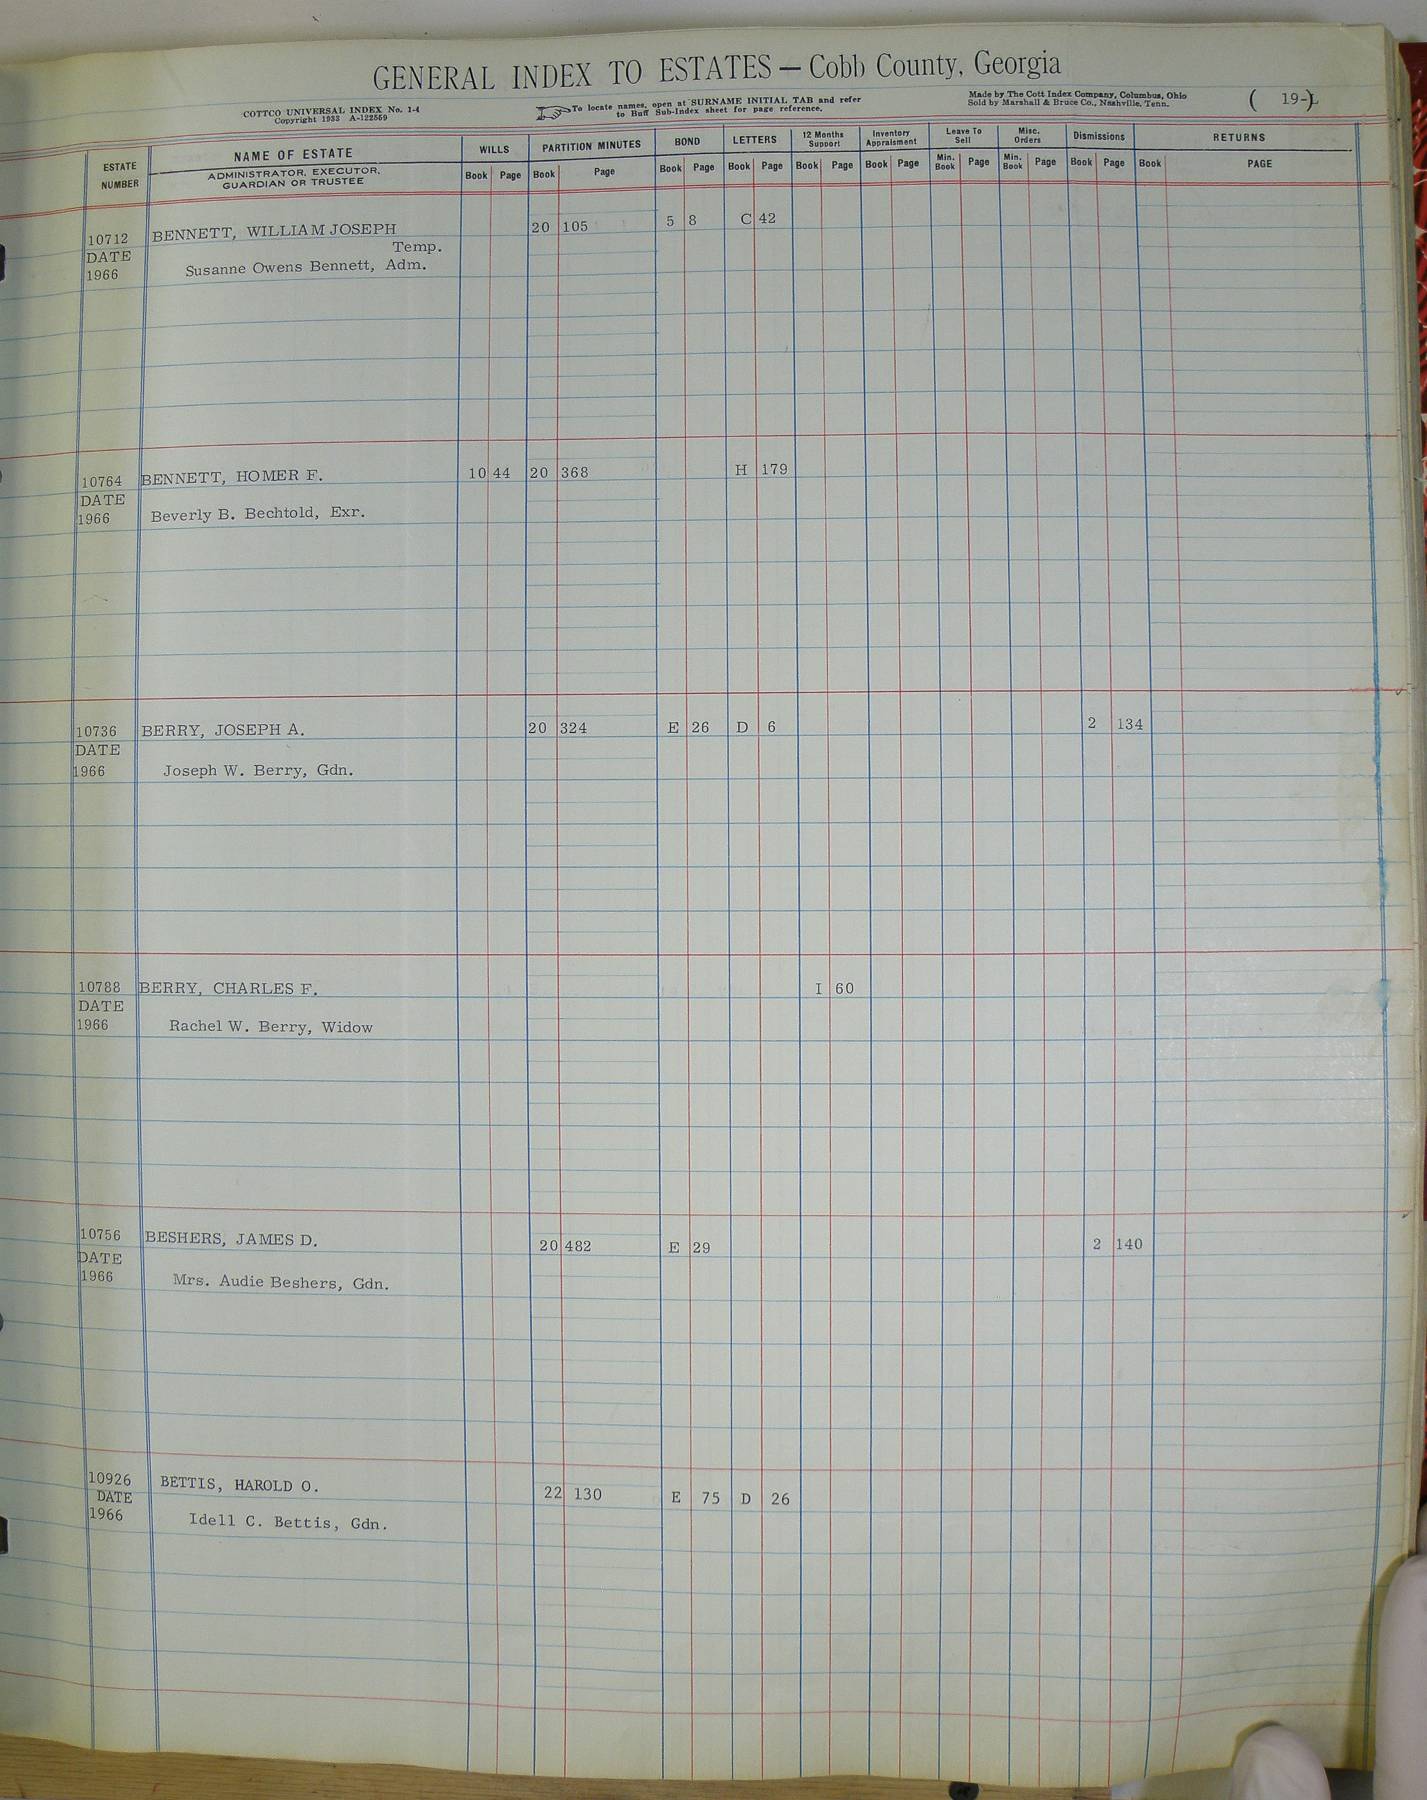 GENERAL INDEX TO ESTATES — Cobb County, Georgia
COTTCO UNIVERSAL INDEX No. 1-4
Copyright 1933 A-122559
To locate names, open at SURNAME INITIAL TAB and refer
to Buff Sub-Index sheet for page reference.
Made by The Cott Index Company, Columbus, Ohio
Sold by Marshall & Bruce Co., Nashville, Tenn.
( 19-L )
ESTATE NUMBER
NAME OF ESTATE
ADMINISTRATOR, EXECUTOR,
GUARDIAN OR TRUSTEE
WILLS PARTITION MINUTES BOND LETTERS 12 Months Support Inventory Appraisment Leave To Sell Misc. Orders Dismissions RETURNS
Book Page Book Page Book Page Book Page Book Page Book Page Min. Book Page Min. Book Page Book Page Book PAGE
10712 BENNETT, WILLIAM JOSEPH 20 105 5 8 C 42
DATE Temp.
1966 Susanne Owens Bennett, Adm.
10764 BENNETT, HOMER F. 10 44 20 368 H 179
DATE
1966 Beverly B. Bechtold, Exr.
10736 BERRY, JOSEPH A. 20 324 E 26 D 6 2 134
DATE
1966 Joseph W. Berry, Gdn.
10788 BERRY, CHARLES F. I 60
DATE
1966 Rachel W. Berry, Widow
10756 BESHERS, JAMES D. 20 482 E 29 2 140
DATE
1966 Mrs. Audie Beshers, Gdn.
10926 BETTIS, HAROLD O. 22 130 E 75 D 26
DATE
1966 Idell C. Bettis, Gdn.